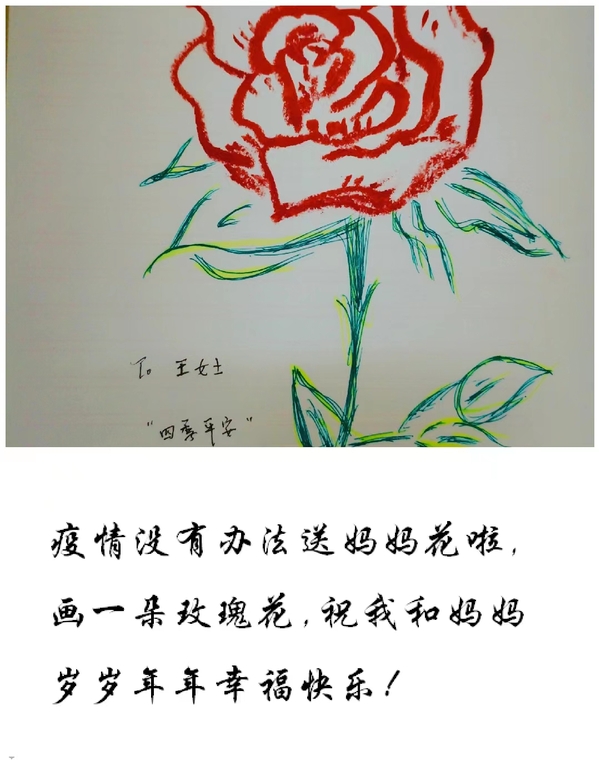 To 王女士
“四季平安”
疫情没有办法送妈妈花啦,
画一朵玫瑰花,祝我和妈妈
岁岁年年幸福快乐!